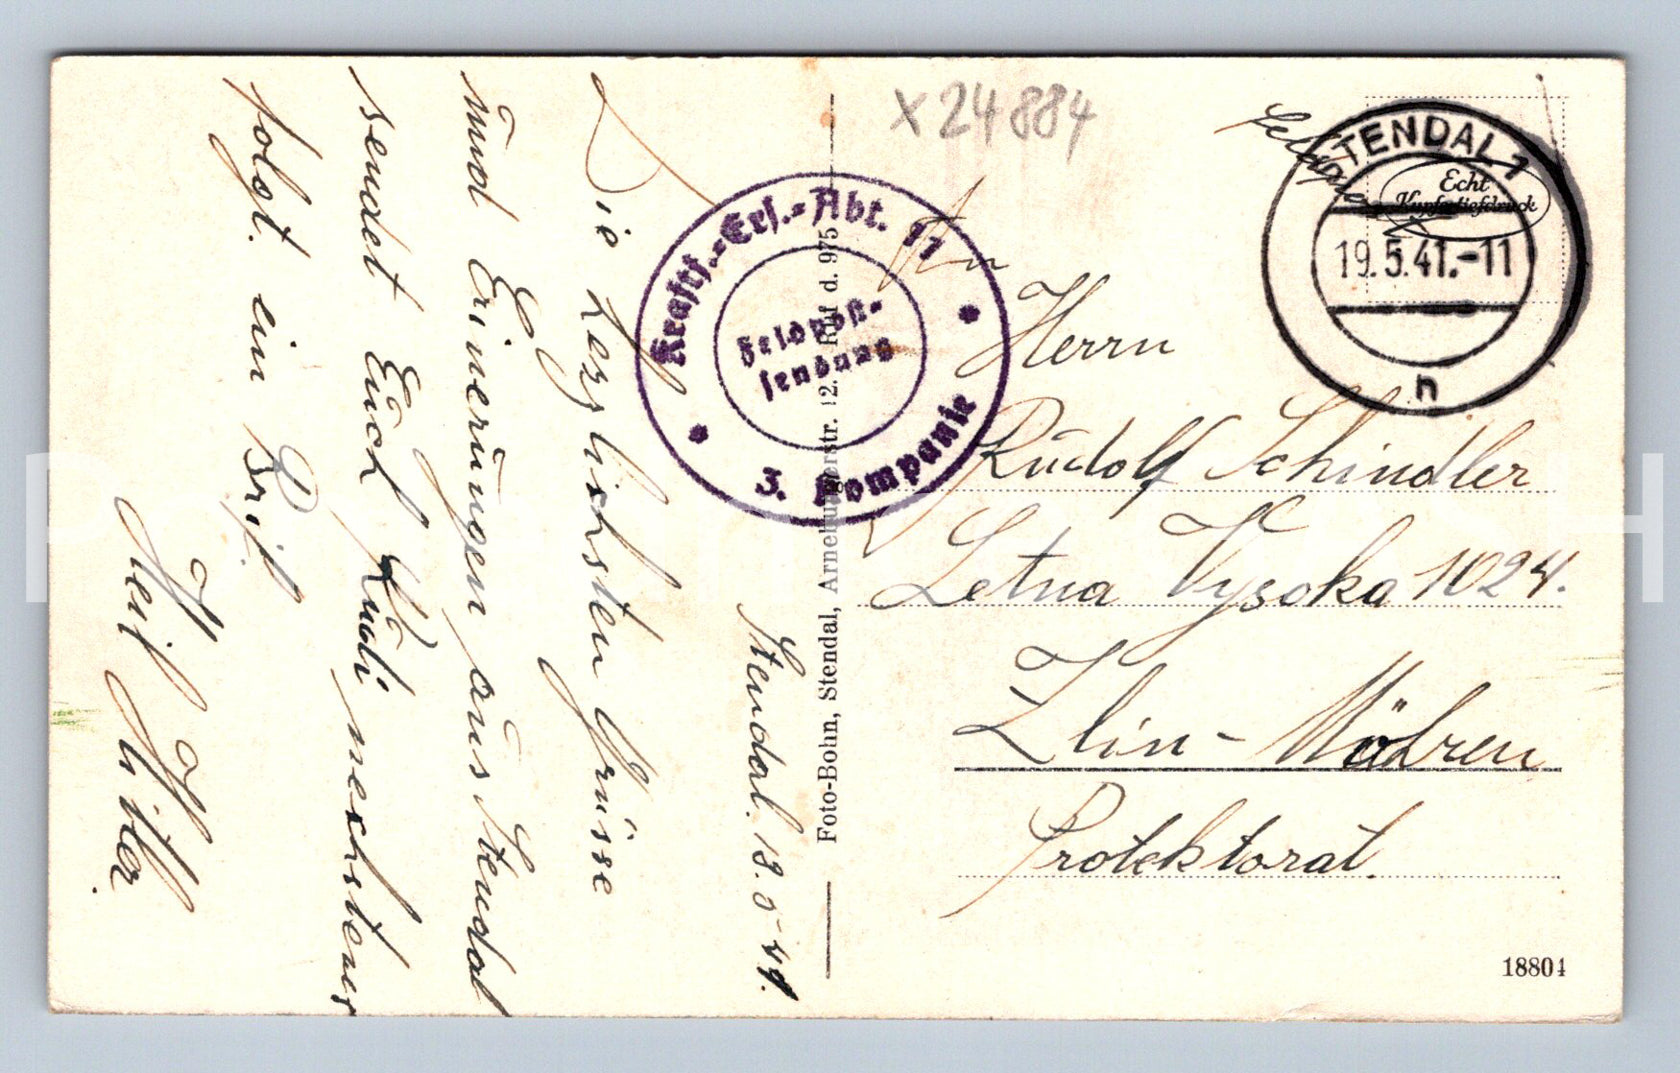 Stendal. 18.5.41.
Die herzlichsten Grüsse
und Erinerungen aus Stendal
sendet Euch Rudi nexhstens
folgt. ein Brif
Heil Hitler.
x 24884
Feldpost
STENDAL 1
19.5.41.-11
n
Echt
Kupfertiefdruck
Kraftf.-Ers.-Abt. 11
Feldpost-
sendung
3. Kompanie
An
Herrn
Rudolf Schindler
Letna Vysoka 1024.
Zlin - Mähren
Protektorat.
Foto-Bohn, Stendal, Arneburgerstr. 12. Ruf d. 975
18804